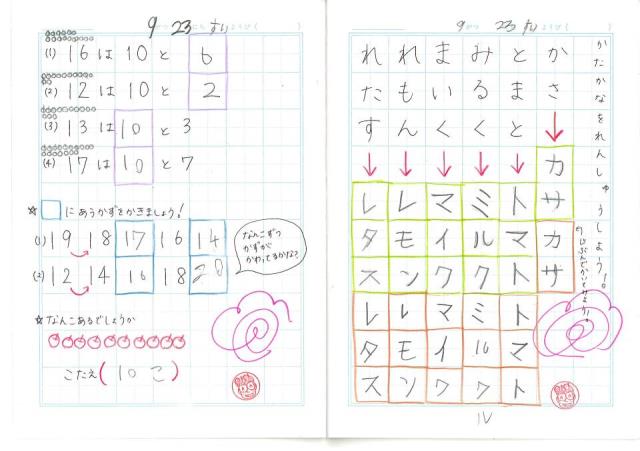 9がつ 23にち すいようび( )
(1) 16は10と6
(2) 12は10と2
(3) 13は10と3
(4) 17は10と7
☆□にあうかずをかきましょう!
(1) 19 18 17 16 14
(2) 12 14 16 18 20
なんこずつ
かずが
かわってるかな?
☆なんこあるでしょうか
こたえ(10こ)
9がつ 23にち すいようび( )
かたかなをれんしゅうしょう!
かさ
とまと
みるく
まいく
れもん
れたす
カサ
トマト
ミルク
マイク
レモン
レタス
カサ
トマト
ミルク
マイク
レモン
レタス